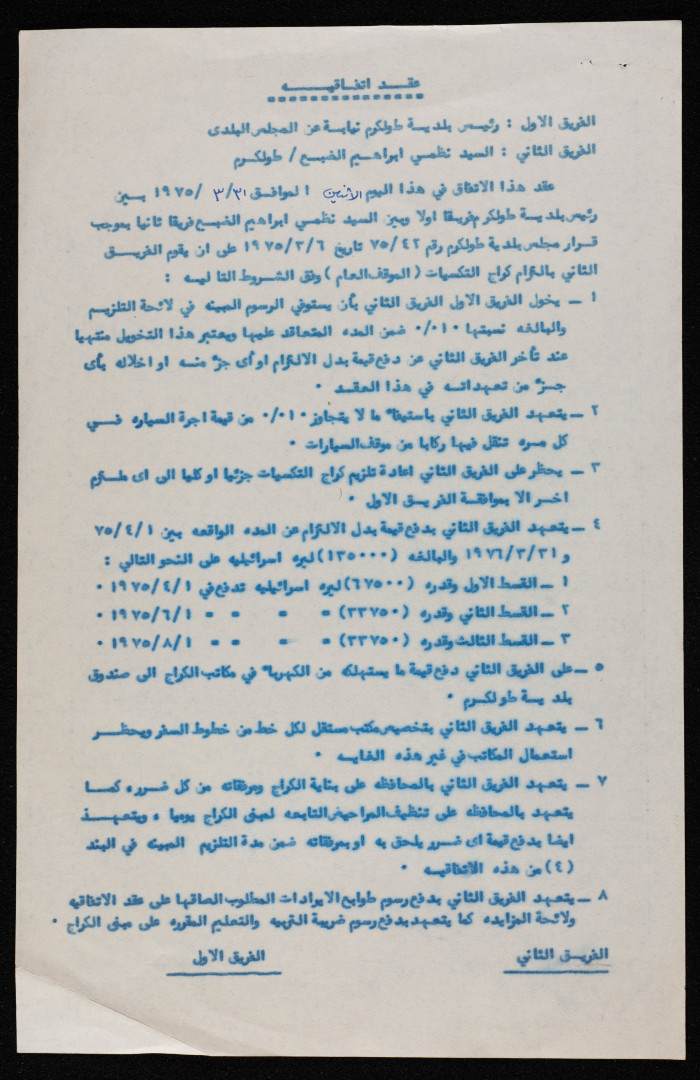 عقد اتفاقيه
الفريق الاول : رئيس بلدية طولكرم نيابة عن المجلس البلدى
الفريق الثاني : السيد نظمي ابراهيم الضبع / طولكرم
عقد هذا الاتفاق في هذا اليوم الاثنين الموافق ٣١/ ٣/ ١٩٧٥ بين
رئيس بلدية طولكرم فريقا اولا وبين السيد نظمي ابراهيم الضبع فريقا ثانيا بموجب
قرار مجلس بلدية طولكرم رقم ٧٥/٤٢ تاريخ ١٩٧٥/٣/٦ على ان يقوم الفريق
الثاني بالتزام كراج التكسيات ( الموقف العام ) وفق الشروط التاليه :
١ – يخول الفريق الاول الفريق الثاني بأن يستوفي الرسوم المبينه في لائحة التلزيم
والبالغه نسبتها ٠/٠١٠ ضمن المده المتعاقد عليها ويعتبر هذا التخويل منتهيا
عند تأخر الفريق الثاني عن دفع قيمة بدل الالتزام او أى جزء منه او اخلاله بأى
جزء من تعهداته في هذا العقد ٠
٢ – يتعهد الفريق الثاني باستيفاء ما لا يتجاوز ٠/٠١٠ من قيمة اجرة السياره في
كل مره تنقل فيها ركابا من موقف السيارات ٠
٣ – يحظر على الفريق الثاني اعادة تلزيم كراج التكسيات جزئيا او كليا الى اى ملتزم
اخر الا بموافقة الفريق الاول ٠
٤ – يتعهد الفريق الثاني بدفع قيمة بدل الالتزام عن المده الواقعه بين ٧٥/٤/١
و ١٩٧٦/٣/٣١ والبالغه (١٣٥٠٠٠) ليره اسرائيليه على النحو التالي :
١ – القسط الاول وقدره (٦٧٥٠٠) ليره اسرائيليه تدفع في ١٩٧٥/٤/١ ٠
٢ – القسط الثاني وقدره (٣٣٧٥٠) = = = = ١٩٧٥/٦/١ ٠
٣ – القسط الثالث وقدره (٣٣٧٥٠) = = = = ١٩٧٥/٨/١ ٠
٥ – على الفريق الثاني دفع قيمة ما يستهلكه من الكهرباء في مكاتب الكراج الى صندوق
بلدية طولكرم ٠
٦ – يتعهد الفريق الثاني بتخصيص مكتب مستقل لكل خط من خطوط السفر ويحظر
استعمال المكاتب في غير هذه الغايه ٠
٧ – يتعهد الفريق الثاني بالمحافظه على بناية الكراج ومرفقاته من كل ضرر ه كما
يتعهد بالمحافظه على تنظيف المراحيض التابعه لمبنى الكراج يوميا ه ويتعهد
ايضا بدفع قيمة اى ضرر يلحق به او بمرفقاته ضمن مدة التلزيم المبينه في البند
(٤) من هذه الاتفاقيه ٠
٨ – يتعهد الفريق الثاني بدفع رسوم طوابع الايرادات المطلوب الصاقها على عقد الاتفاقيه
ولائحة المزايده كما يتعهد بدفع رسوم ضريبة التربيه والتعليم المقرره على مبنى الكراج ٠
الفريق الثاني الفريق الاول